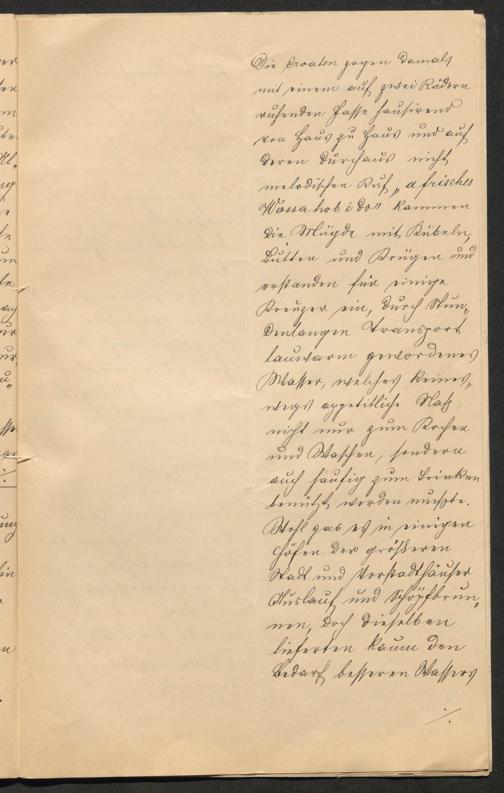 Die Croaten zogen damals
mit einem auf zwei Rädern
ruhenden Fasse hausirend
von Haus zu Haus und auf
deren durchaus nicht
melodischen Ruf „a frisches
Wossa hob i do" kammen
die Mägde mit Kübeln,
Butten und Krügen und
erstanden für einige
Kreuzer ein, durch Stun„
denlangen Transport
lauwarm gewordenes
Wasser, welches keines„
wegs appetitliche Naß,
nicht nur zum Kochen
und Waschen, sondern
auch häufig zum Trinken
benützt werden mußte.
Wohl gab es in einigen
Höfen der größeren
Stadt und Vorstadthäuser
Auslauf und Schöpfbrun„
nen, doch dieselben
lieferten kaum den
Bedarf besseren Wassers
./.